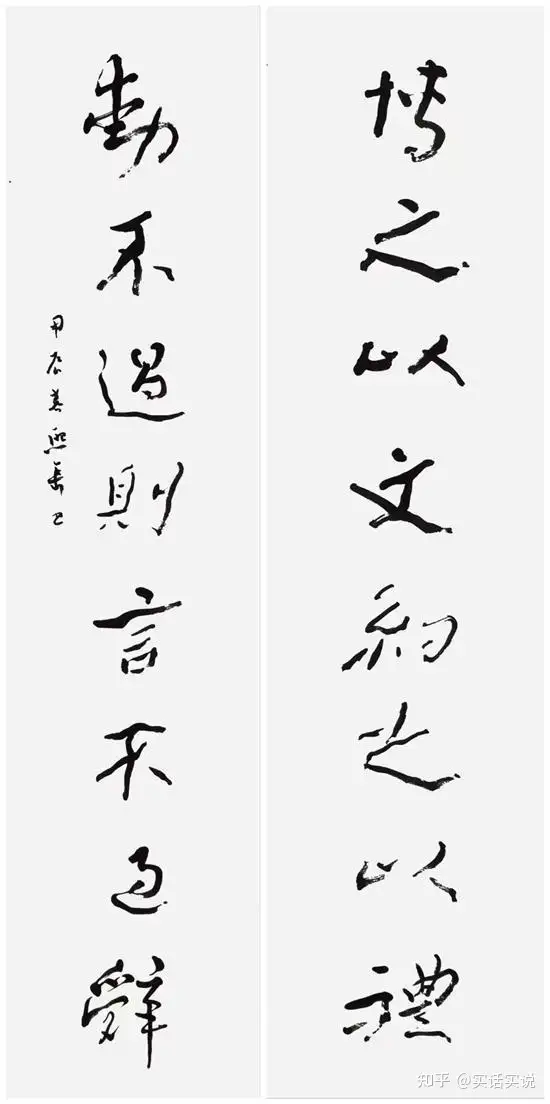 博之以文約之以禮
動不過則言不過辭
甲辰
知乎 @实话实说